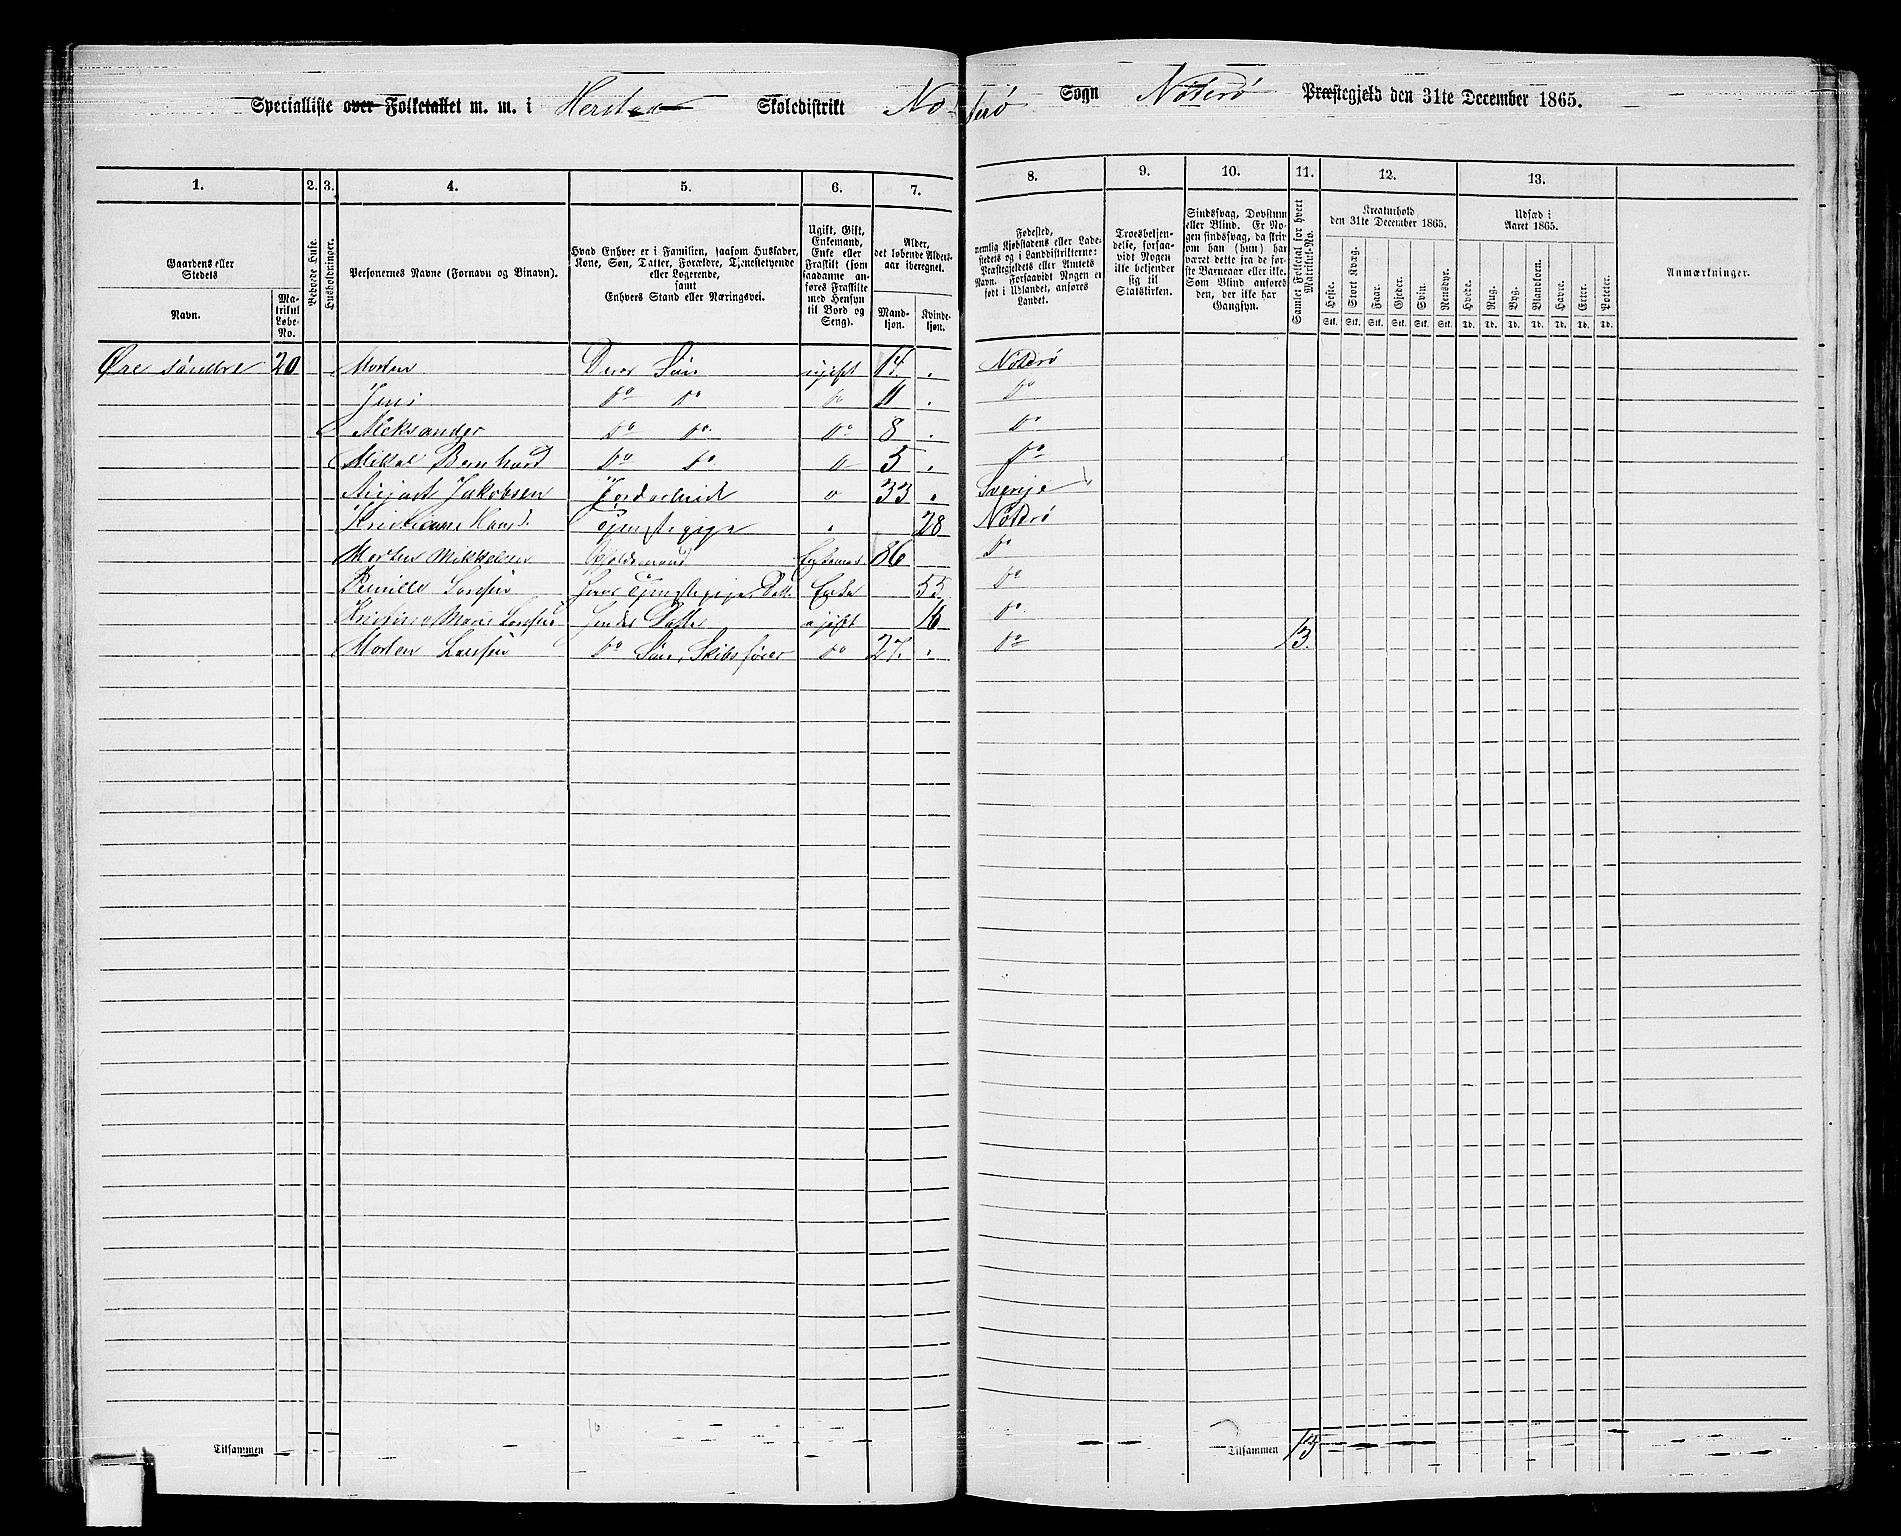 Specialliste over Folketallet m. m. i Herstad Skoledistrikt Nøtterø Sogn Nøtterø Præstegjeld den 31te December 1865.
1. 2. 3. 4. 5. 6. 7. 8. 9. 10. 11. 12. 13.
Gaardens eller Stedets
Navn.
Matrikul Løbe-No.
Beboede Huse.
Husholdninger.
Personernes Navne (Fornavn og Binavn).
Hvad Enhver er i Familien, saasom Husfader, Kone, Søn, Datter, Forældre, Tjenestetyende eller Logerende, samt Enhvers Stand eller Næringsvei.
Ugift, Gift, Enkemand, Enke eller Fraskilt (som saadanne anføres Fraskilte med Hensyn til Bord og Seng).
Alder, det løbende Aldersaar iberegnet.
Mandkjøn. Kvindekjøn.
Fødested, nemlig Kjøbstadens eller Ladestedets og i Landdistrikterne: Præstegjeldets eller Annexets Navn. Forsaavidt Nogen er født i Udlandet, anføres Landet.
Troesbekjendelse, forsaavidt Nogen ikke bekjender sig til Statskirken.
Sindssvag, Døvstum eller Blind. Er Nogen sindssvag, da skriv om han (hun) har været dette fra de første Barneaar eller ikke. Som Blind anføres den, der ikke har Gangsyn.
Samlet Folketal for hvert Matrikul-No.
Kreaturhold den 31te December 1865.
Heste. Stort Kvæg. Faar. Gjeder. Svin. Rensdyr.
Stk. Stk. Stk. Stk. Stk. Stk.
Udsæd i Aaret 1865.
Hvede. Rug. Byg. Blandkorn. Havre. Erter. Poteter.
Td. Td. Td. Td. Td. Td. Td.
Anmærkninger.
Øre søndre 20 Morten Deres Søn ugift 14 Nøterø
Jens do do do 11 do
Aleksander do do do 8 do
Mikal Bernhard do do 5 do
August Jakobsen 33 Sverije
Kristiane Hansd. Tjenestepige 28 Nøterø
Morten Mikkelsen Enkemand 86 do
Pernille Larsen hans Tjenestepige, Datt. Enke 55 do
Marie Larsen hendes Datter ugift 16 do
Morten Larsen do Søn, Skibsfører do 27 do 13.
Tilsammen Tilsammen 13